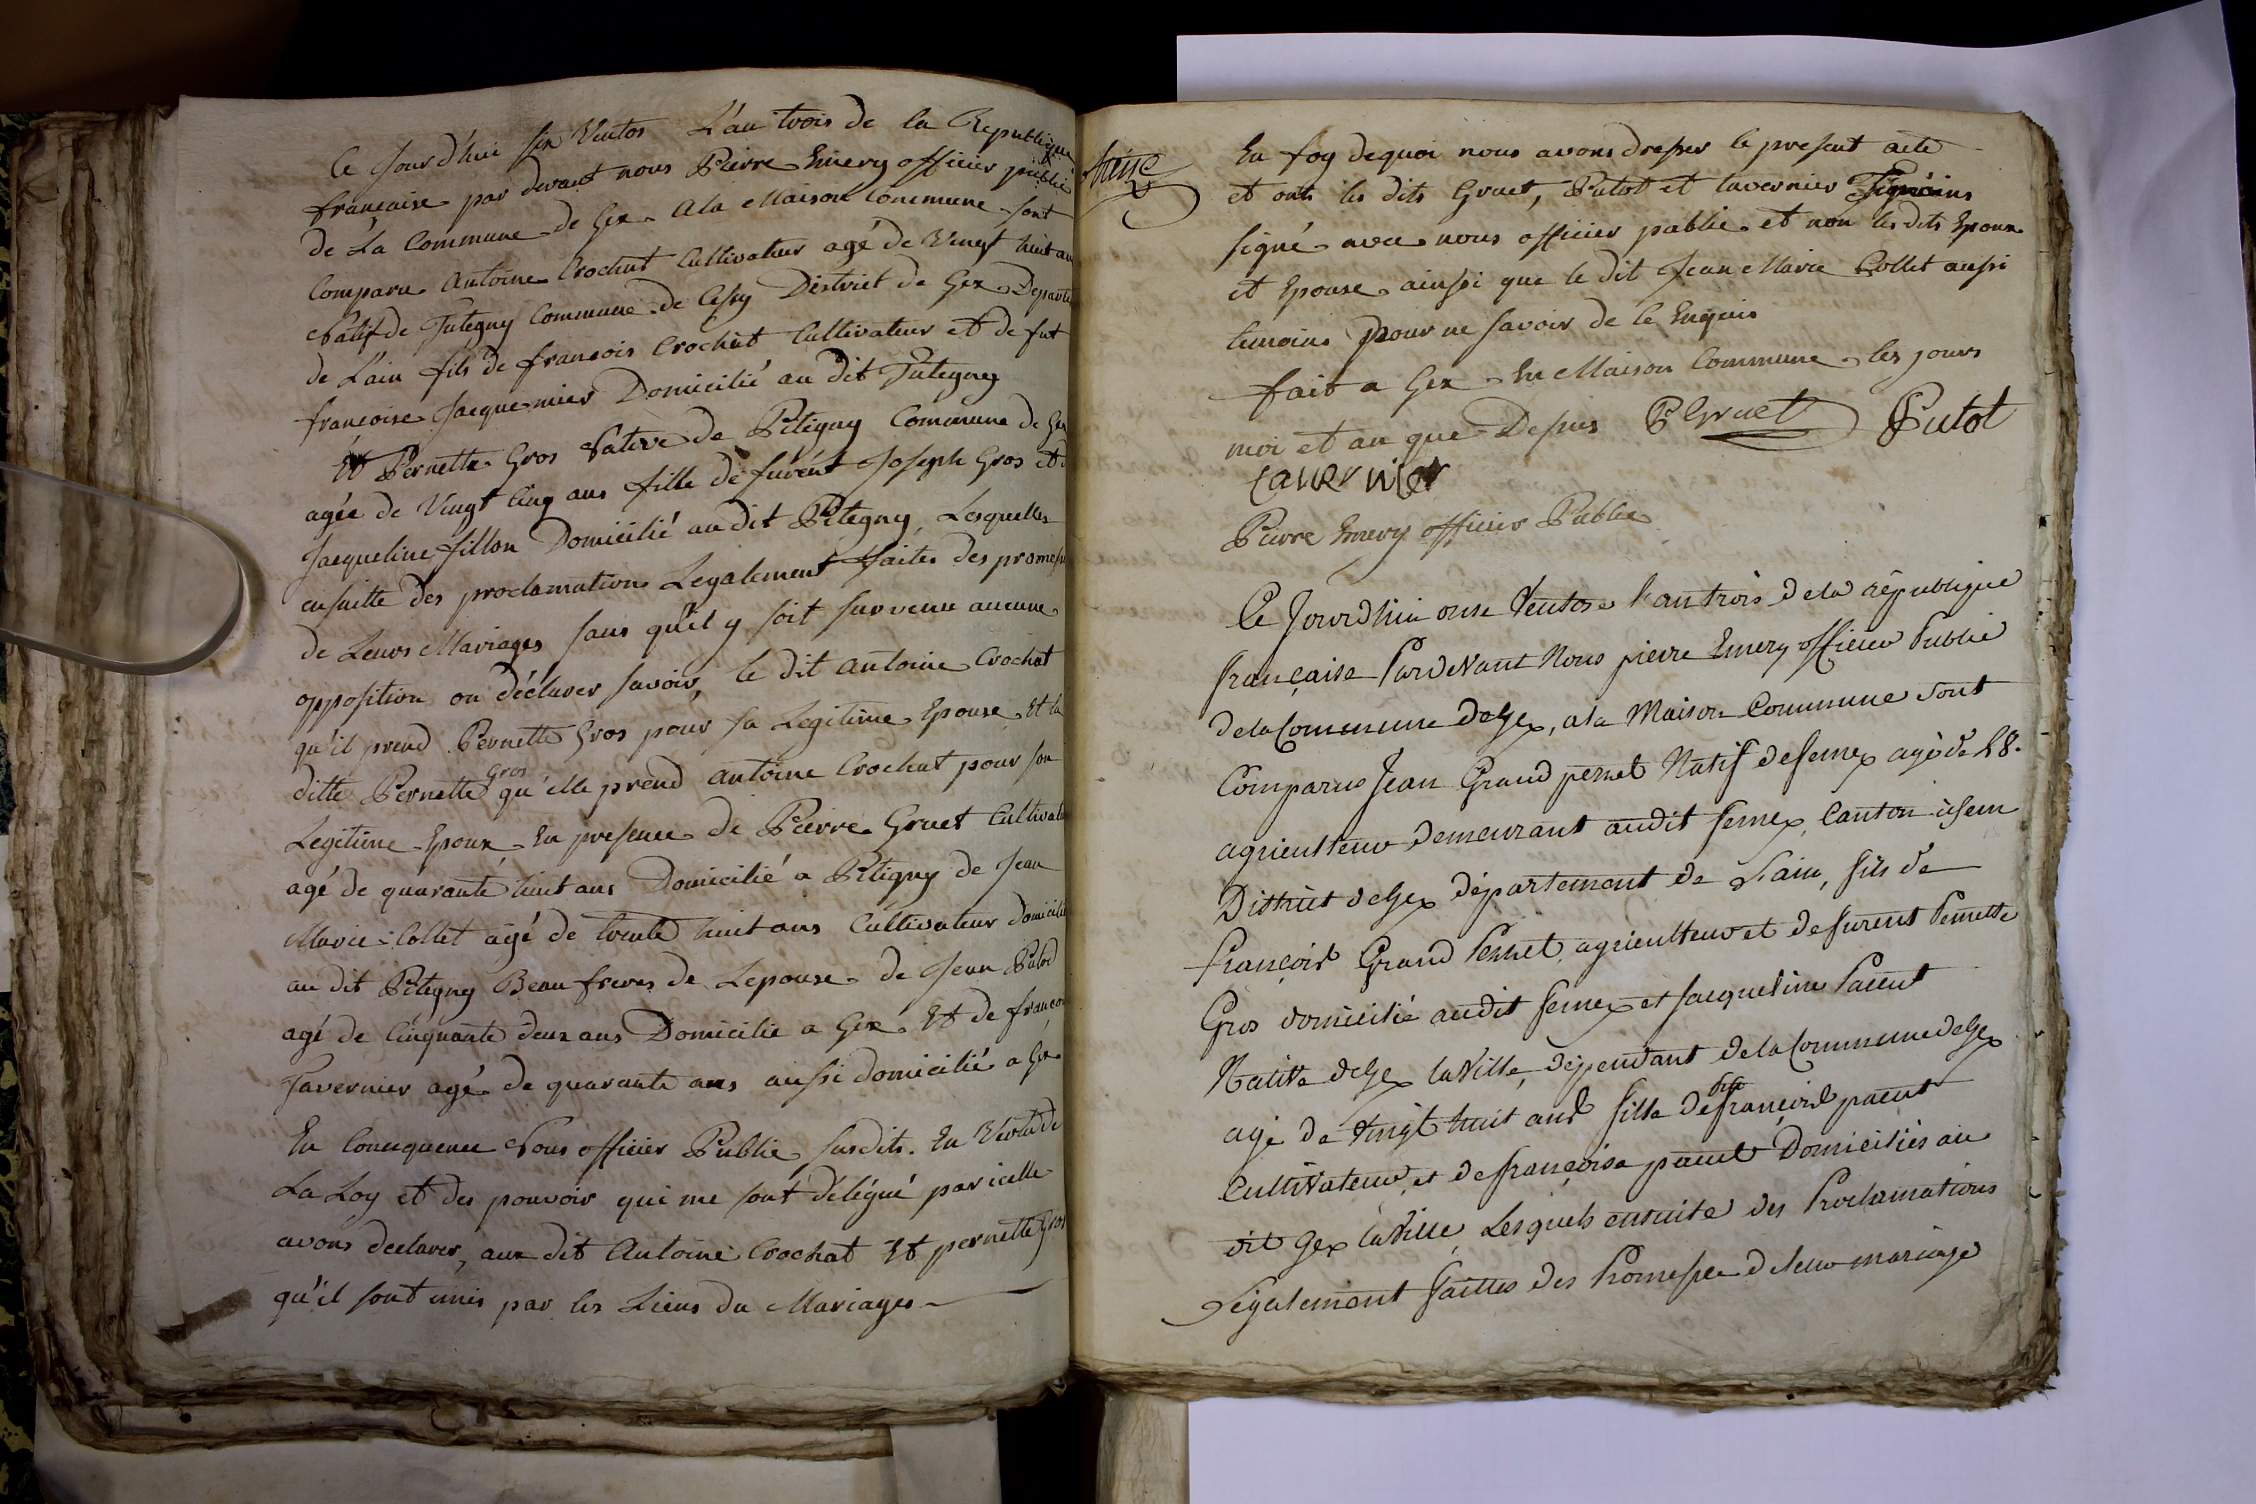 Ce Jourd'hui six Ventos L'an trois de la Republique
francaise par devant nous Pierre Emery officier public
de La Commune de Gex a la Maison Commune sont
Comparu Antoine Crochat Cultivateur agé de Vingt huit an
Natif de Tutegny Commune de Cessy District de Gex Departe
de L'ain fils de francois Crochat Cultivateur et de fut
francoise Jacquemier Domicilié au dit Tutegny
Et Pernette Gros Native de Pitigny Commune de Gex
agée de Vingt Cinq ans fille de furent Joseph Gros et d
Jacqueline fillon Domicilié au dit Pitegny, Lesquelles
ensuitte des proclamations Legalement faites des promess
de Leurs Mariages sans qu'il y soit survenu aucune
opposition on déclarer savoir, le dit Antoine Crochat
qu'il prend Pernette Gros pour sa Legitime Epouse Et la
ditte Pernette Gros qu'elle prend Antoine Crochat pour son
Legitime Epoux En presence de Pierre Gruet Cultivate
agé de quarante huit ans Domicilié a Pitigny de Jean
Marie Collet agé de trente huit ans Cultivateur domicilié
au dit Pitegny Beau freres de Lepouse de Jean Putod
agé de Cinquante deux ans Domicilié a Gex Et de francoi
Tavernier agé de quarante ans aussi domicilié a Gex
En Consequence Nous officier Public susdits. En Vertu de
La Loy et des pouvoir qui me sont délégué par icelle
avons declarer, aux dit Antoine Crochat Et pernette Gros
qu'il sont unis par les Liens du Mariages
treise
En foy dequoi nous avons dresser le present acte
et onts les dits Gruet, Putot et tavernier Témoins
signé avec nous officier public et non les dits Epoux
et Epouse ainssi que le dit Jean Marie Collet aussi
temoins pour ne savoir de ce Enquis
fait a Gex En Maison Commune les jours
moi et an que Dessus P Gruet Putot
tavernier
Pierre Emery officier Public
Ce Jourdhui onse Ventose l'an trois de la république
française Pardevant Nous pierre Emery officier Public
de la Commune de Gex, a la Maison Commune sont
Comparus Jean Grand pernet Natif de semex agé de 28.
agriculteur demeurant audit semex, Canton
District de Gex département de Lain, fils de
françois Grand Pernet agriculteur et de furent Pernette
Gros domicilié audit semex et Jacqueline Patent
Native de Gex la Ville, dépendant de la Commune de Gex
agé de vingt huit ans fille de françois patent
Cultivateur, et de françoise patent Domiciliés au
dit Gex la Ville, Lesquels ensuite des Proclamations
Légalement faittes des Promesse de leur mariage